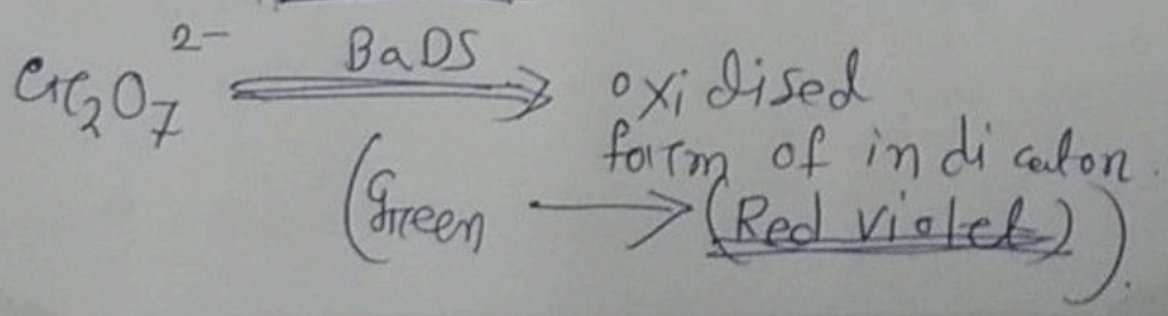 Cr₂O₇²⁻ BaDS oxidised
form of indicator.
(Green → (Red violet)).